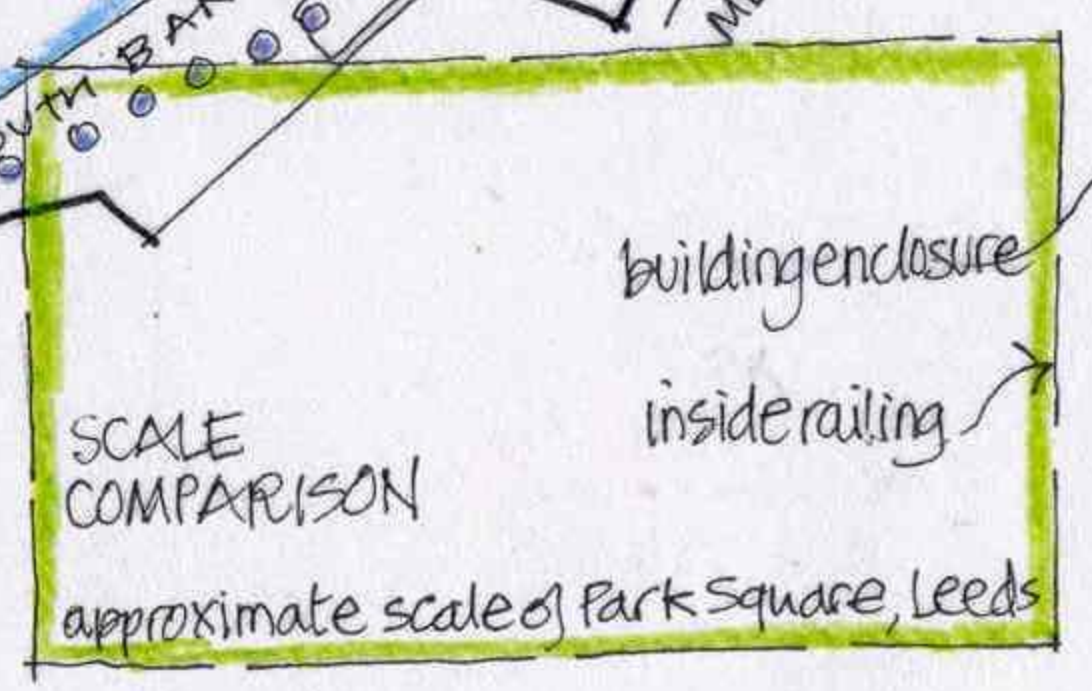 UTH BAN
M
building enclosure
inside railing
SCALE
COMPARISON
approximate scale of Park Square, Leeds